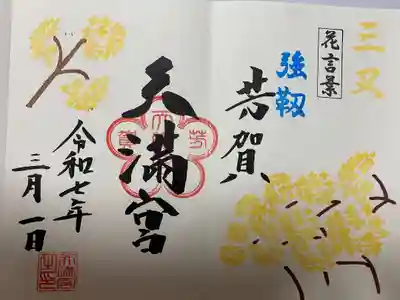 三又
花言景
強靱
芳賀
天満宮
令和七年
三月一日